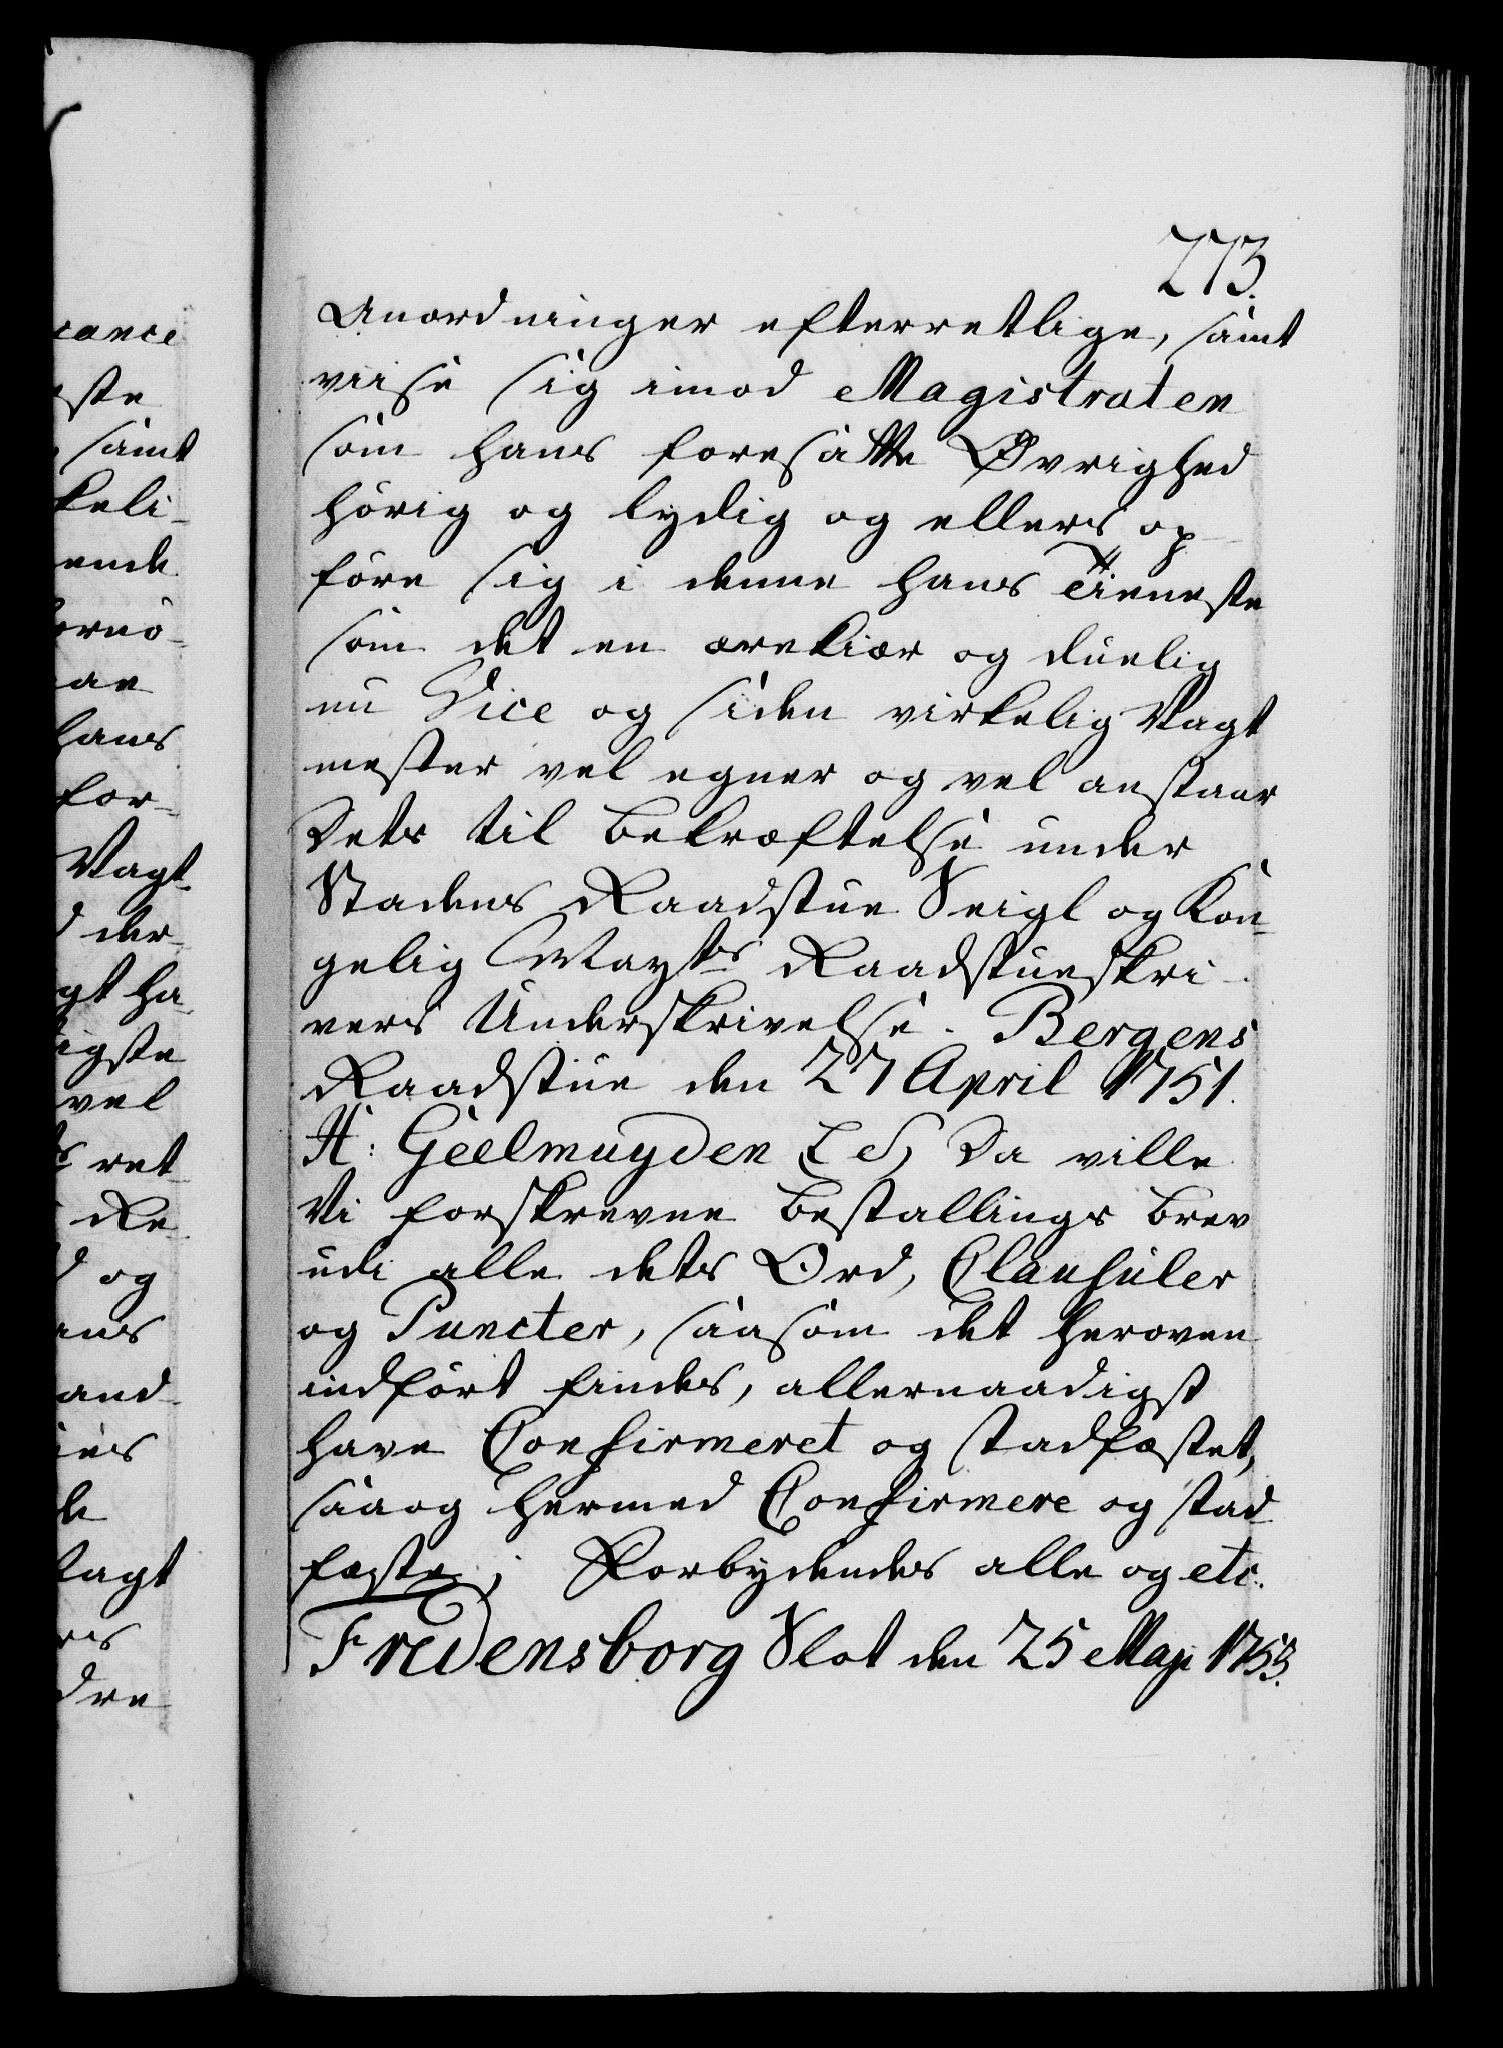 273.
Anordninger efterretlige, samt
viise sig imod Magistraten
som hans foresatte Øvrighed
hörig og lydig og ellers op-
före sig i denne hans Tieneste
som det en ærekiær og duelig
nu Vice og siden virkelig Vagt
mester vel egner og vel anstaar
Dets til Bekræftelse under
Stadens Raadstue Seigl og Kon-
gelig Mayts Raadstueskri-
vers Underskrivelse. Bergens
Raadstue den 27 April 1751.
H: Geelmuyden LS, Da ville
Vi forskrevne Bestallings Brev
udi alle dets Ord, Clausuler
og Puncter, saasom det heroven
indfört findes, allernaadigst
have Confirmeret og stadfæstet,
saa og hermed Confirmere og stad-
fæste; Forbydendes alle og etc.
Fredensborg Slot den 25 Maji 1753.
cance
ste
samt
keli-
ende
ornö-
ae
hans
for-
Vagt-
der-
gt ha-
igste
vel
ret-
Re-
og
ans
and-
de
Vagt
dre